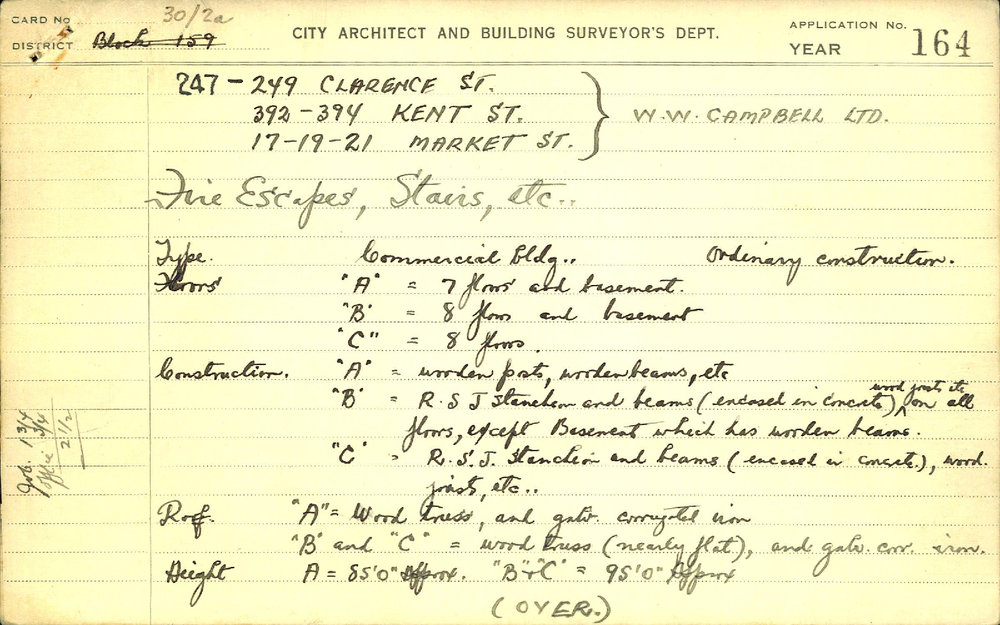 CARD No 30/2a
DISTRICT Block 159
CITY ARCHITECT AND BUILDING SURVEYOR'S DEPT.
APPLICATION No.
YEAR
164
247 - 249 CLARENCE ST.
392 - 394 KENT ST.
17-19-21 MARKET ST.
W.W. CAMPBELL LTD.
Fire Escapes, Stairs, etc..
Type. Commercial bldg.. Ordinary construction.
Floors "A" = 7 floors and basement.
"B" = 8 floors and basement
"C" = 8 floors.
Construction. "A" = wooden posts, wooden beams, etc
wood joists etc
"B" = R.S.J Stanchion and beams (encased in concrete) ^ on all
floors, except Basement which has wooden beams.
"C" = R.S.J. Stanchion and beams (encased in concrete.), wood.
joists, etc..
Roof. "A" = Wood truss, and galv. corrugated iron
"B" and "C" = wood truss (nearly flat), and galv. corr. iron.
Height A = 85'0" Approx. "B" & "C" = 95'0" Approx
(OVER.)
Job. 1 3/4
Office 3/4
2 1/2